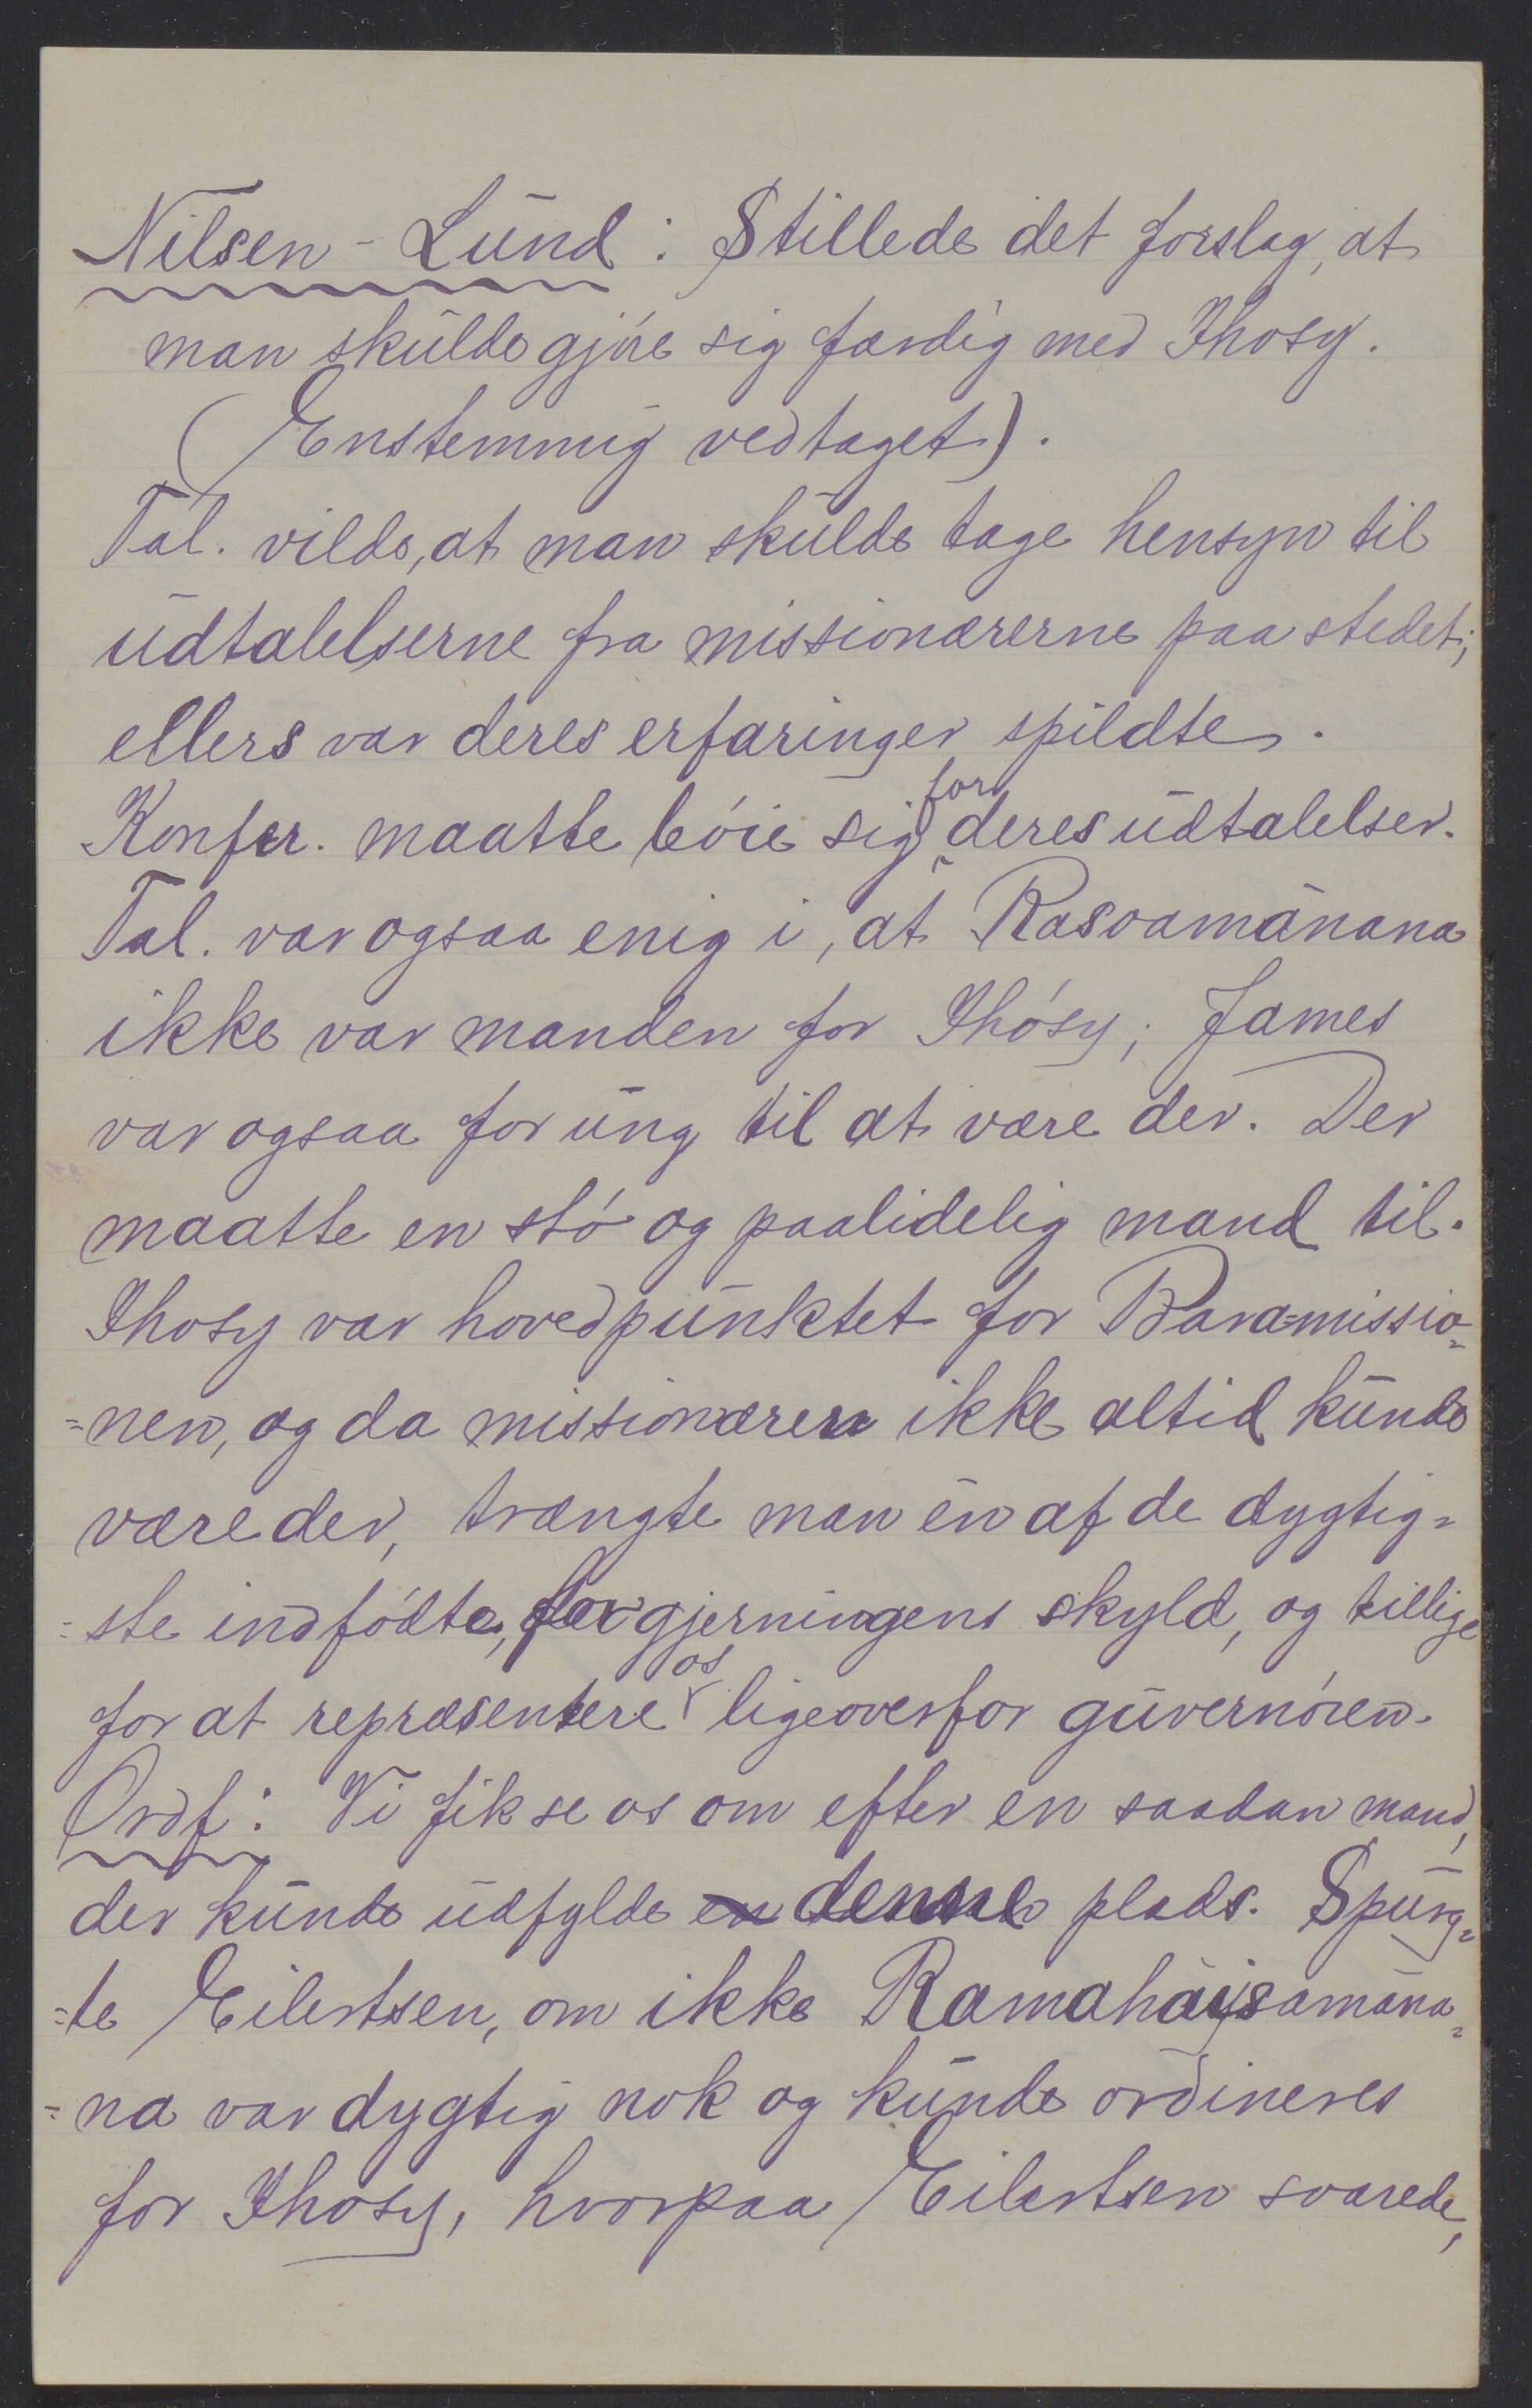 Nilsen-Lund: Stillede det forslag, at
man skulde gjøre sig færdig med Ihosy.
(Enstemmig vedtaget).
Tal. vilde, at man skulde tage hensyn til
udtalelserne fra missionærerne paa stedet;
ellers var deres erfaringer spildte.
Konfer. maatte bøie sig for deres udtalelser.
Tal. var ogsaa enig i, at Rasoamanana
ikke var manden for Ihósy; James
var ogsaa for ung til at være der. Der
maatte en stø og paalidelig mand til.
Ihosy var hovedpunktet for Bara-missio=
=nen, og da missionæren ikke altid kunde
være der, trængte man èn af de dygtig=
=ste indfødte, for gjerningens skyld, og tillige
for at repræsentere os ligeoverfor guvernøren.
Ordf: Vi fik se os om efter en saadan mand,
der kunde udfylde en denne plads. Spurg=
=te Eilertsen, om ikke Ramahajsamana=
=na var dygtig nok og kunde ordineres
for Ihosy, hvorpaa Eilertsen svarede,